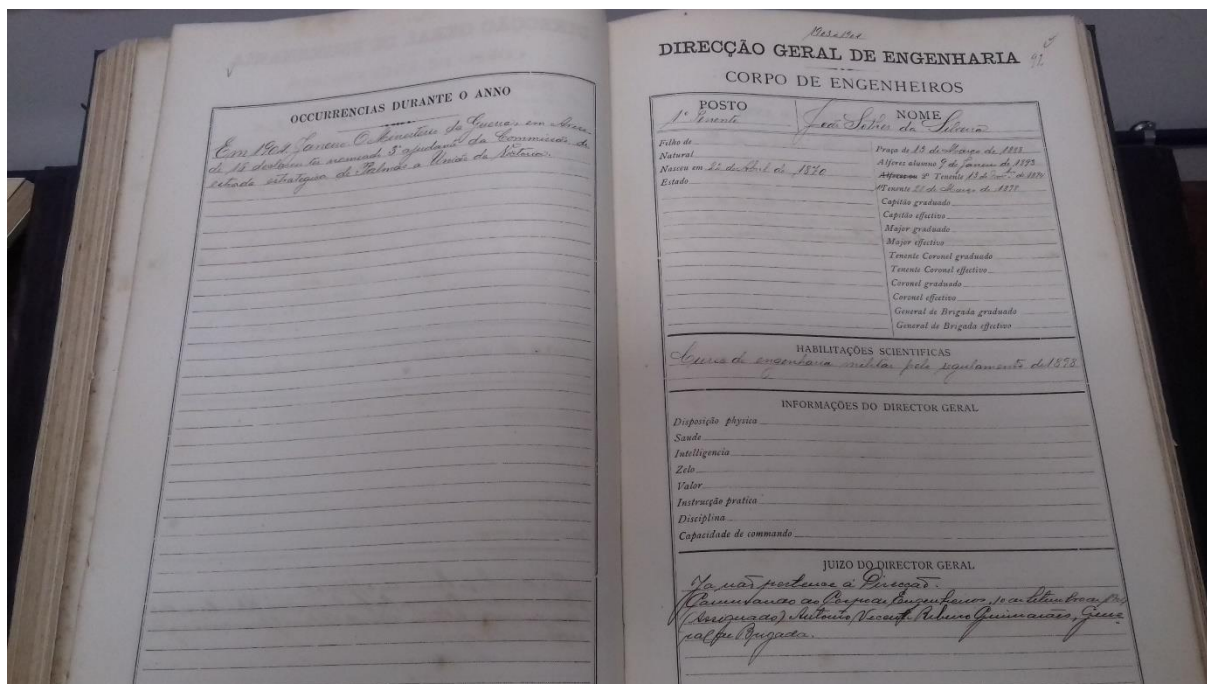 OCCURRENCIAS DURANTE O ANNO
Em 1904. Janeiro O Ministerio da Guerra, em Aviso
de 18 declarou ter nomeado 5º ajudante da Commissão de
estrada estrategica de Palmas a União da Victoria.
DIRECÇÃO GERAL DE ENGENHARIA
92
CORPO DE ENGENHEIROS
POSTO
NOME
1º Tenente
da Silveira
Filho de
Natural
Nasceu em 22 de Abril de 1870
Estado
Praça de 13 de Março de
Alferes alumno 9 de Janeiro de 1893
Alferes em 2º Tenente 13 de de 1894
1º Tenente de Março de
Capitão graduado
Capitão effectivo
Major graduado
Major effectivo
Tenente Coronel graduado
Tenente Coronel effectivo
Coronel graduado
Coronel effectivo
General de Brigada graduado
General de Brigada effectivo
HABILITAÇÕES SCIENTIFICAS
Curso de engenharia militar pelo regulamento de 1898
INFORMAÇÕES DO DIRECTOR GERAL
Disposição physica
Saude
Intelligencia
Zelo
Valor
Instrucção pratica
Disciplina
Capacidade de commando
JUIZO DO DIRECTOR GERAL
Ja não pertence á Direcção.
Commando do Corpo de Engenheiros, 10 de Setembro de
(Assignado) Antonio Vicente Ribeiro Guimarães, Gene
ral de Brigada.